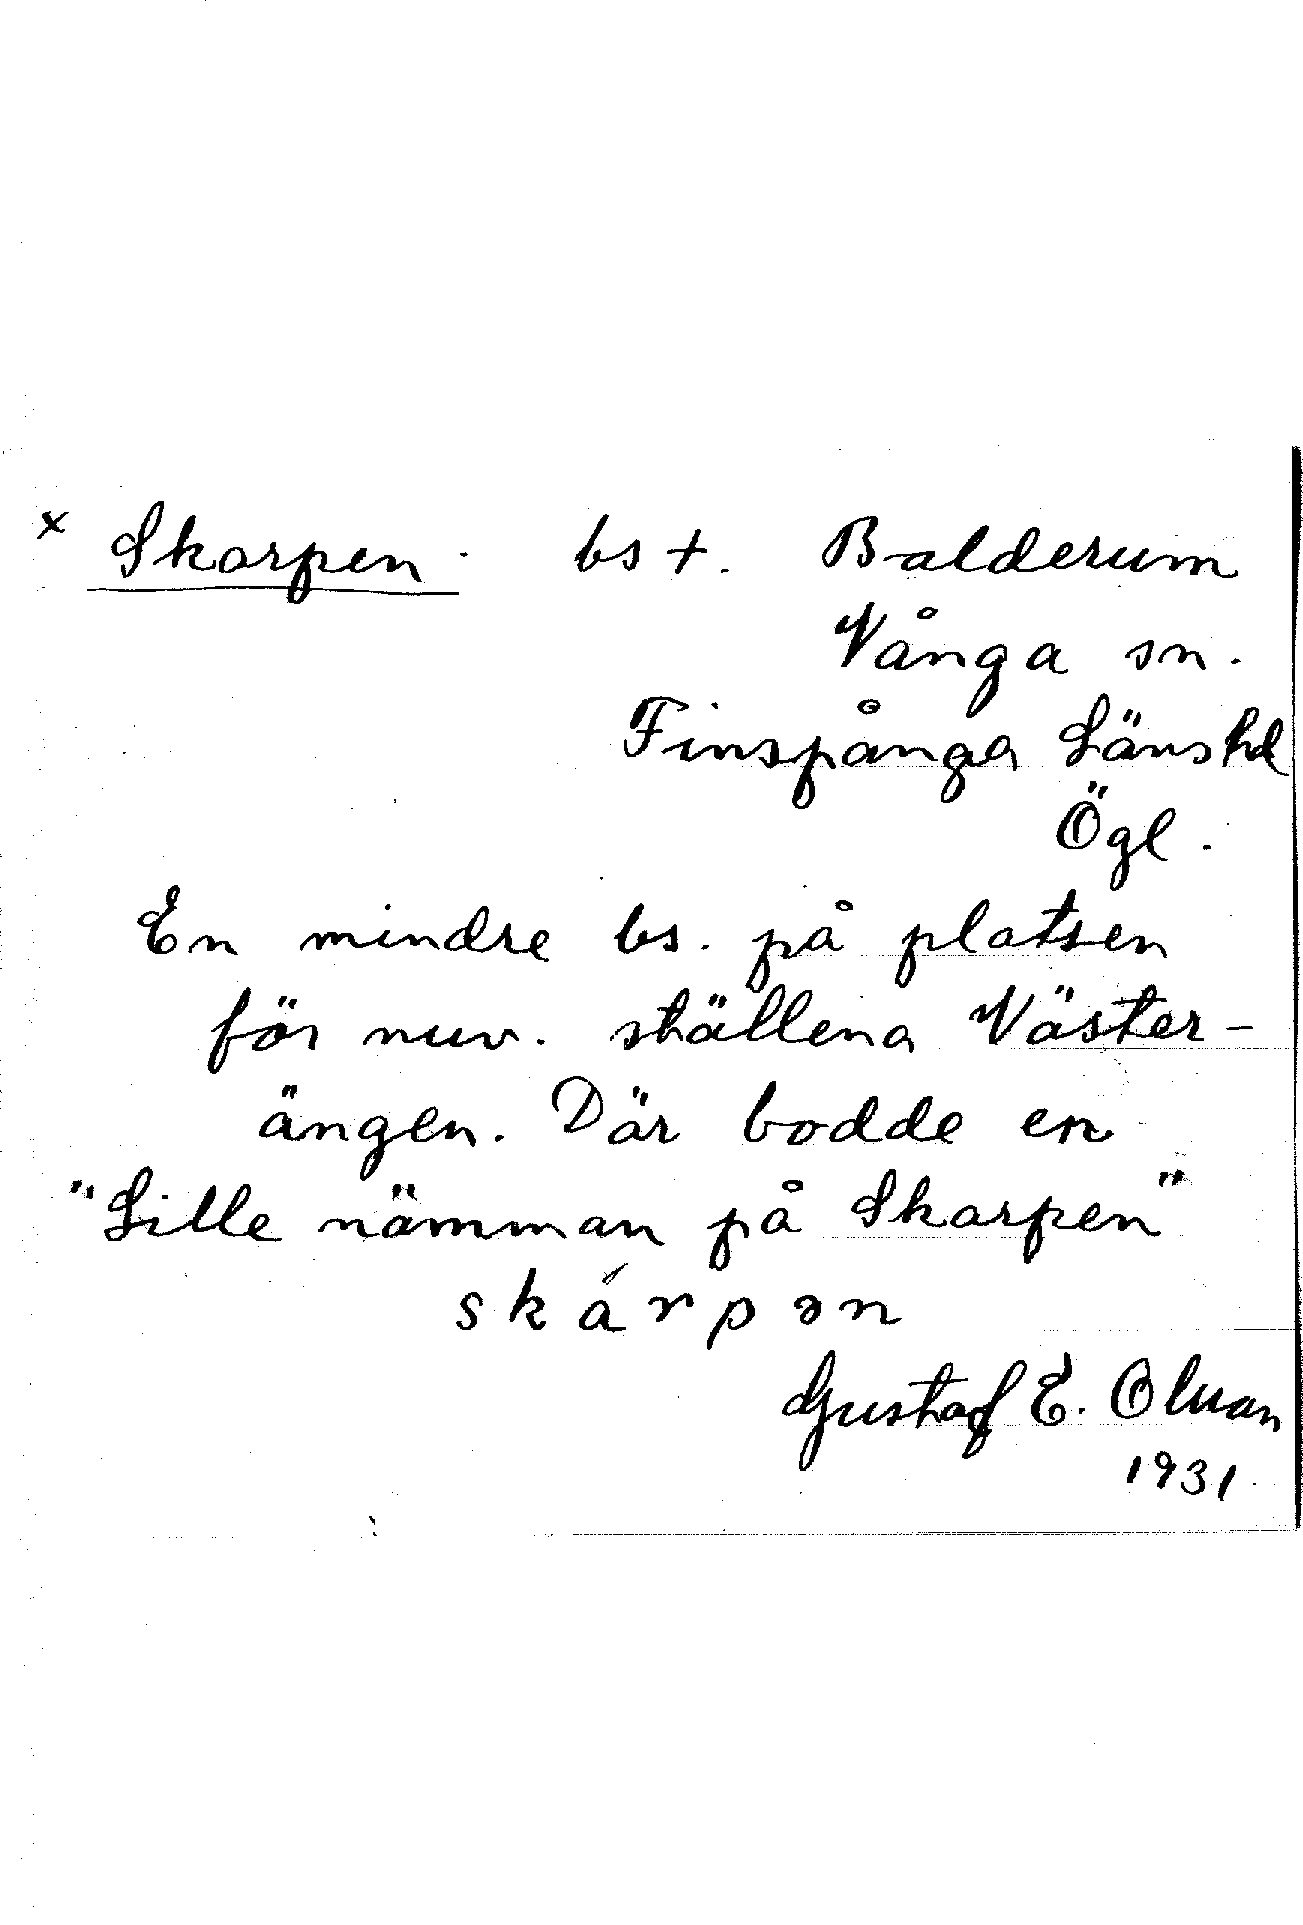 x Skarpen. bs †. Balderum
Vånga sn.
Finspånga Länshd
Ögl.
En mindre bs. på platsen
för nuv. ställena Väster-
ängen. Där bodde en
"Lille nämman på Skarpen"
skárpən
Gustaf E. Olsson
1931.